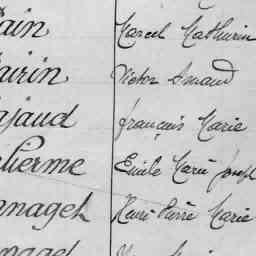 ain Marcel Mathurin
airin Victor Arnaud
ajaud François Marie
llerme Emile Marie Joseph
nnagel Henri Pierre Marie